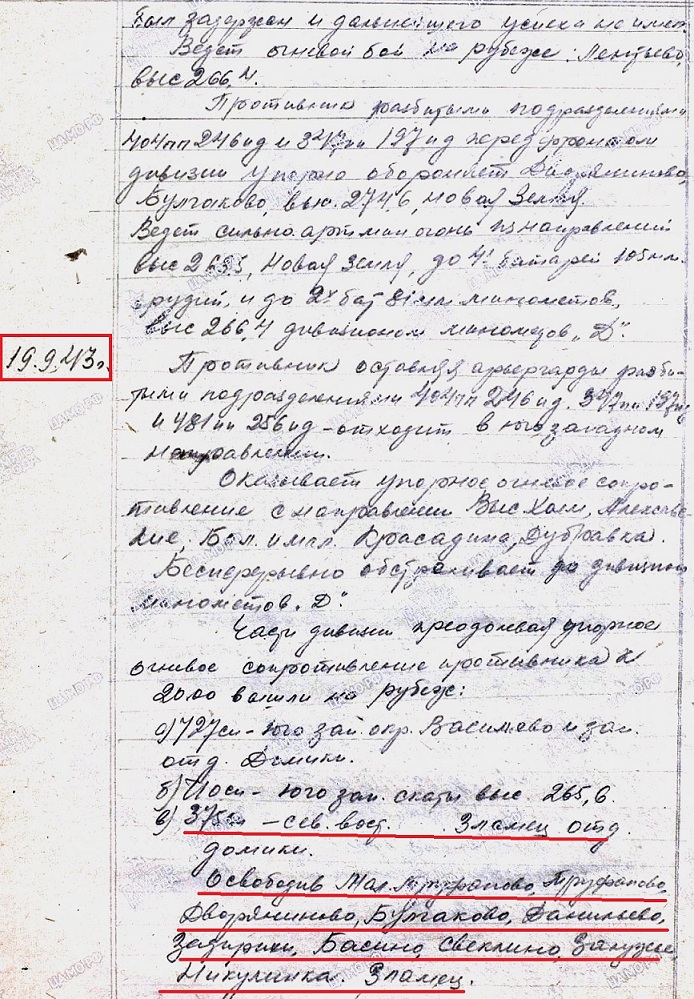 был задержан и дальнейшего успеха не имел.
Ведет огневой бой на рубеже: Леонтьево,
выс 266,4.
Противник разбитыми подразделениями
404 пп 246 пд и 347 пп 197 пд перед фронтом
дивизии упорно обороняет Дворяниново,
Булгаково, выс. 274,6, Новая Земля
Ведет сильно арт мин огонь из направлений
выс 263,5, Новая Земля, до 4х батарей 105 мм.
орудий, и до 2х бат 81 мм минометов,
выс 266,4 дивизионом минометов „Д“.
19.9.43 г.
Противник оставляя арьергарды разби-
тыми подразделениями 404 пп 246 пд. 347 пп 197 пд
и 481 пп 256 пд - отходит в юго западном
направлении.
Оказывает упорное огневое сопро-
тивление с направлении Выс Холм,
Бол. и мал. Красадина, Дубравка.
Беспрерывно обстреливает до дивизион
минометов „Д“.
Части дивизии преодолевая упорное
огневое сопротивление противника к
20.00 вышли на рубеж:
а) 727 сп - юго зап. окр. Васильево и зап.
отд. Домики.
б) сп - юго зап. скаты выс. 265,6
в) 375 сп - сев. вост. Зламец отд
домики.
Освободив Мал. Труфаново, Труфаново,
Дворяниново, Булгаково, Данильево,
Басино, Свеклино,
Никулинка. Зламец.
ЦАМО РФ